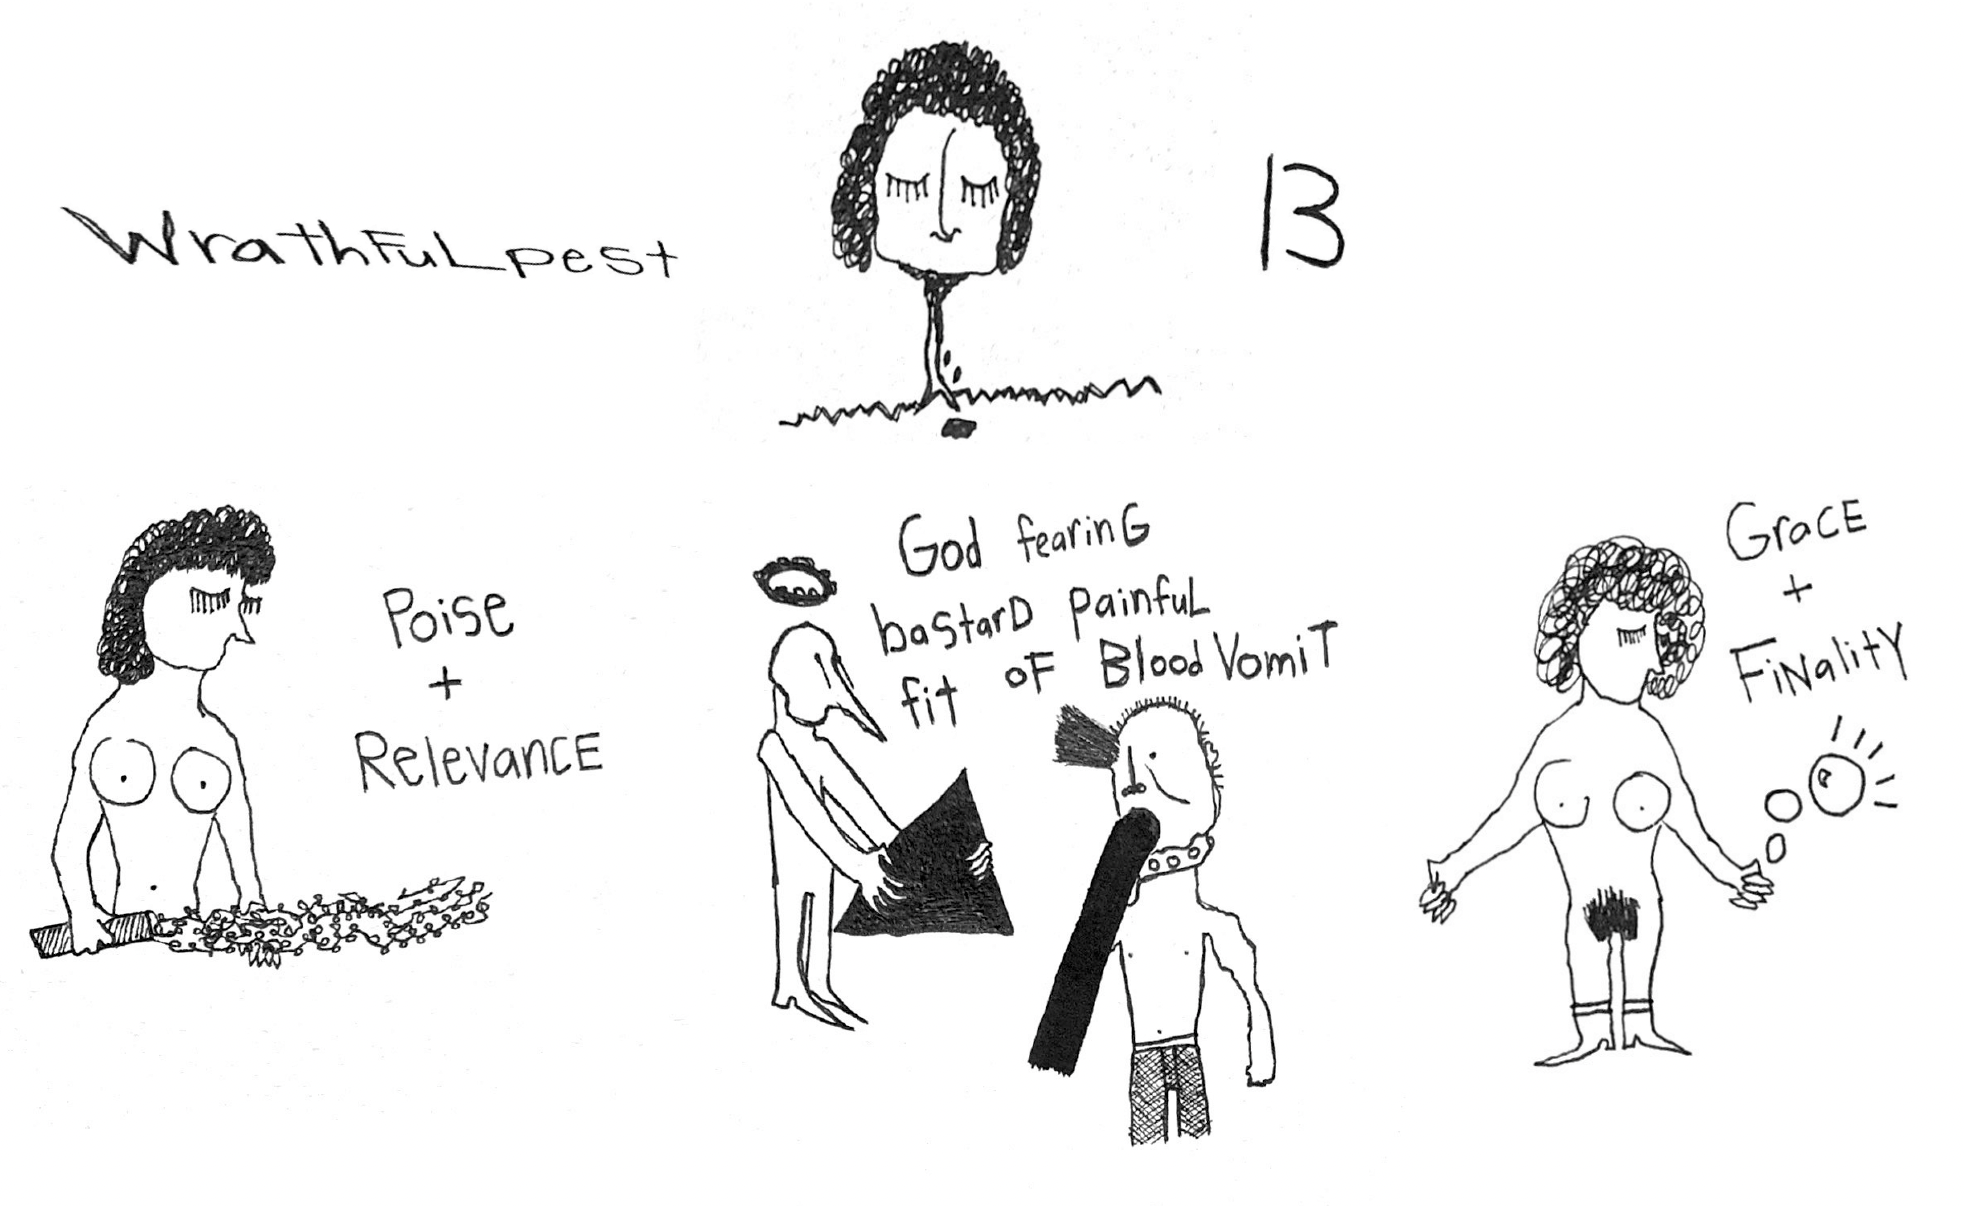 WrathFuL pest
13
Poise
+
RelevancE
God fearinG
bastarD painfuL
fit oF Blood VomiT
GracE
+
FiNalitY